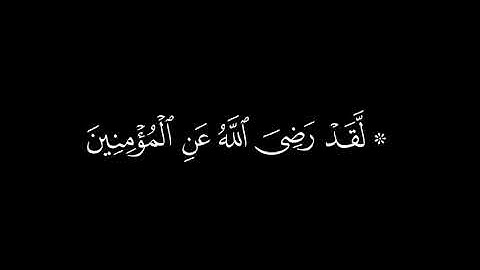 ۞ لَّقَدْ رَضِىَ ٱللَّهُ عَنِ ٱلْمُؤْمِنِينَ